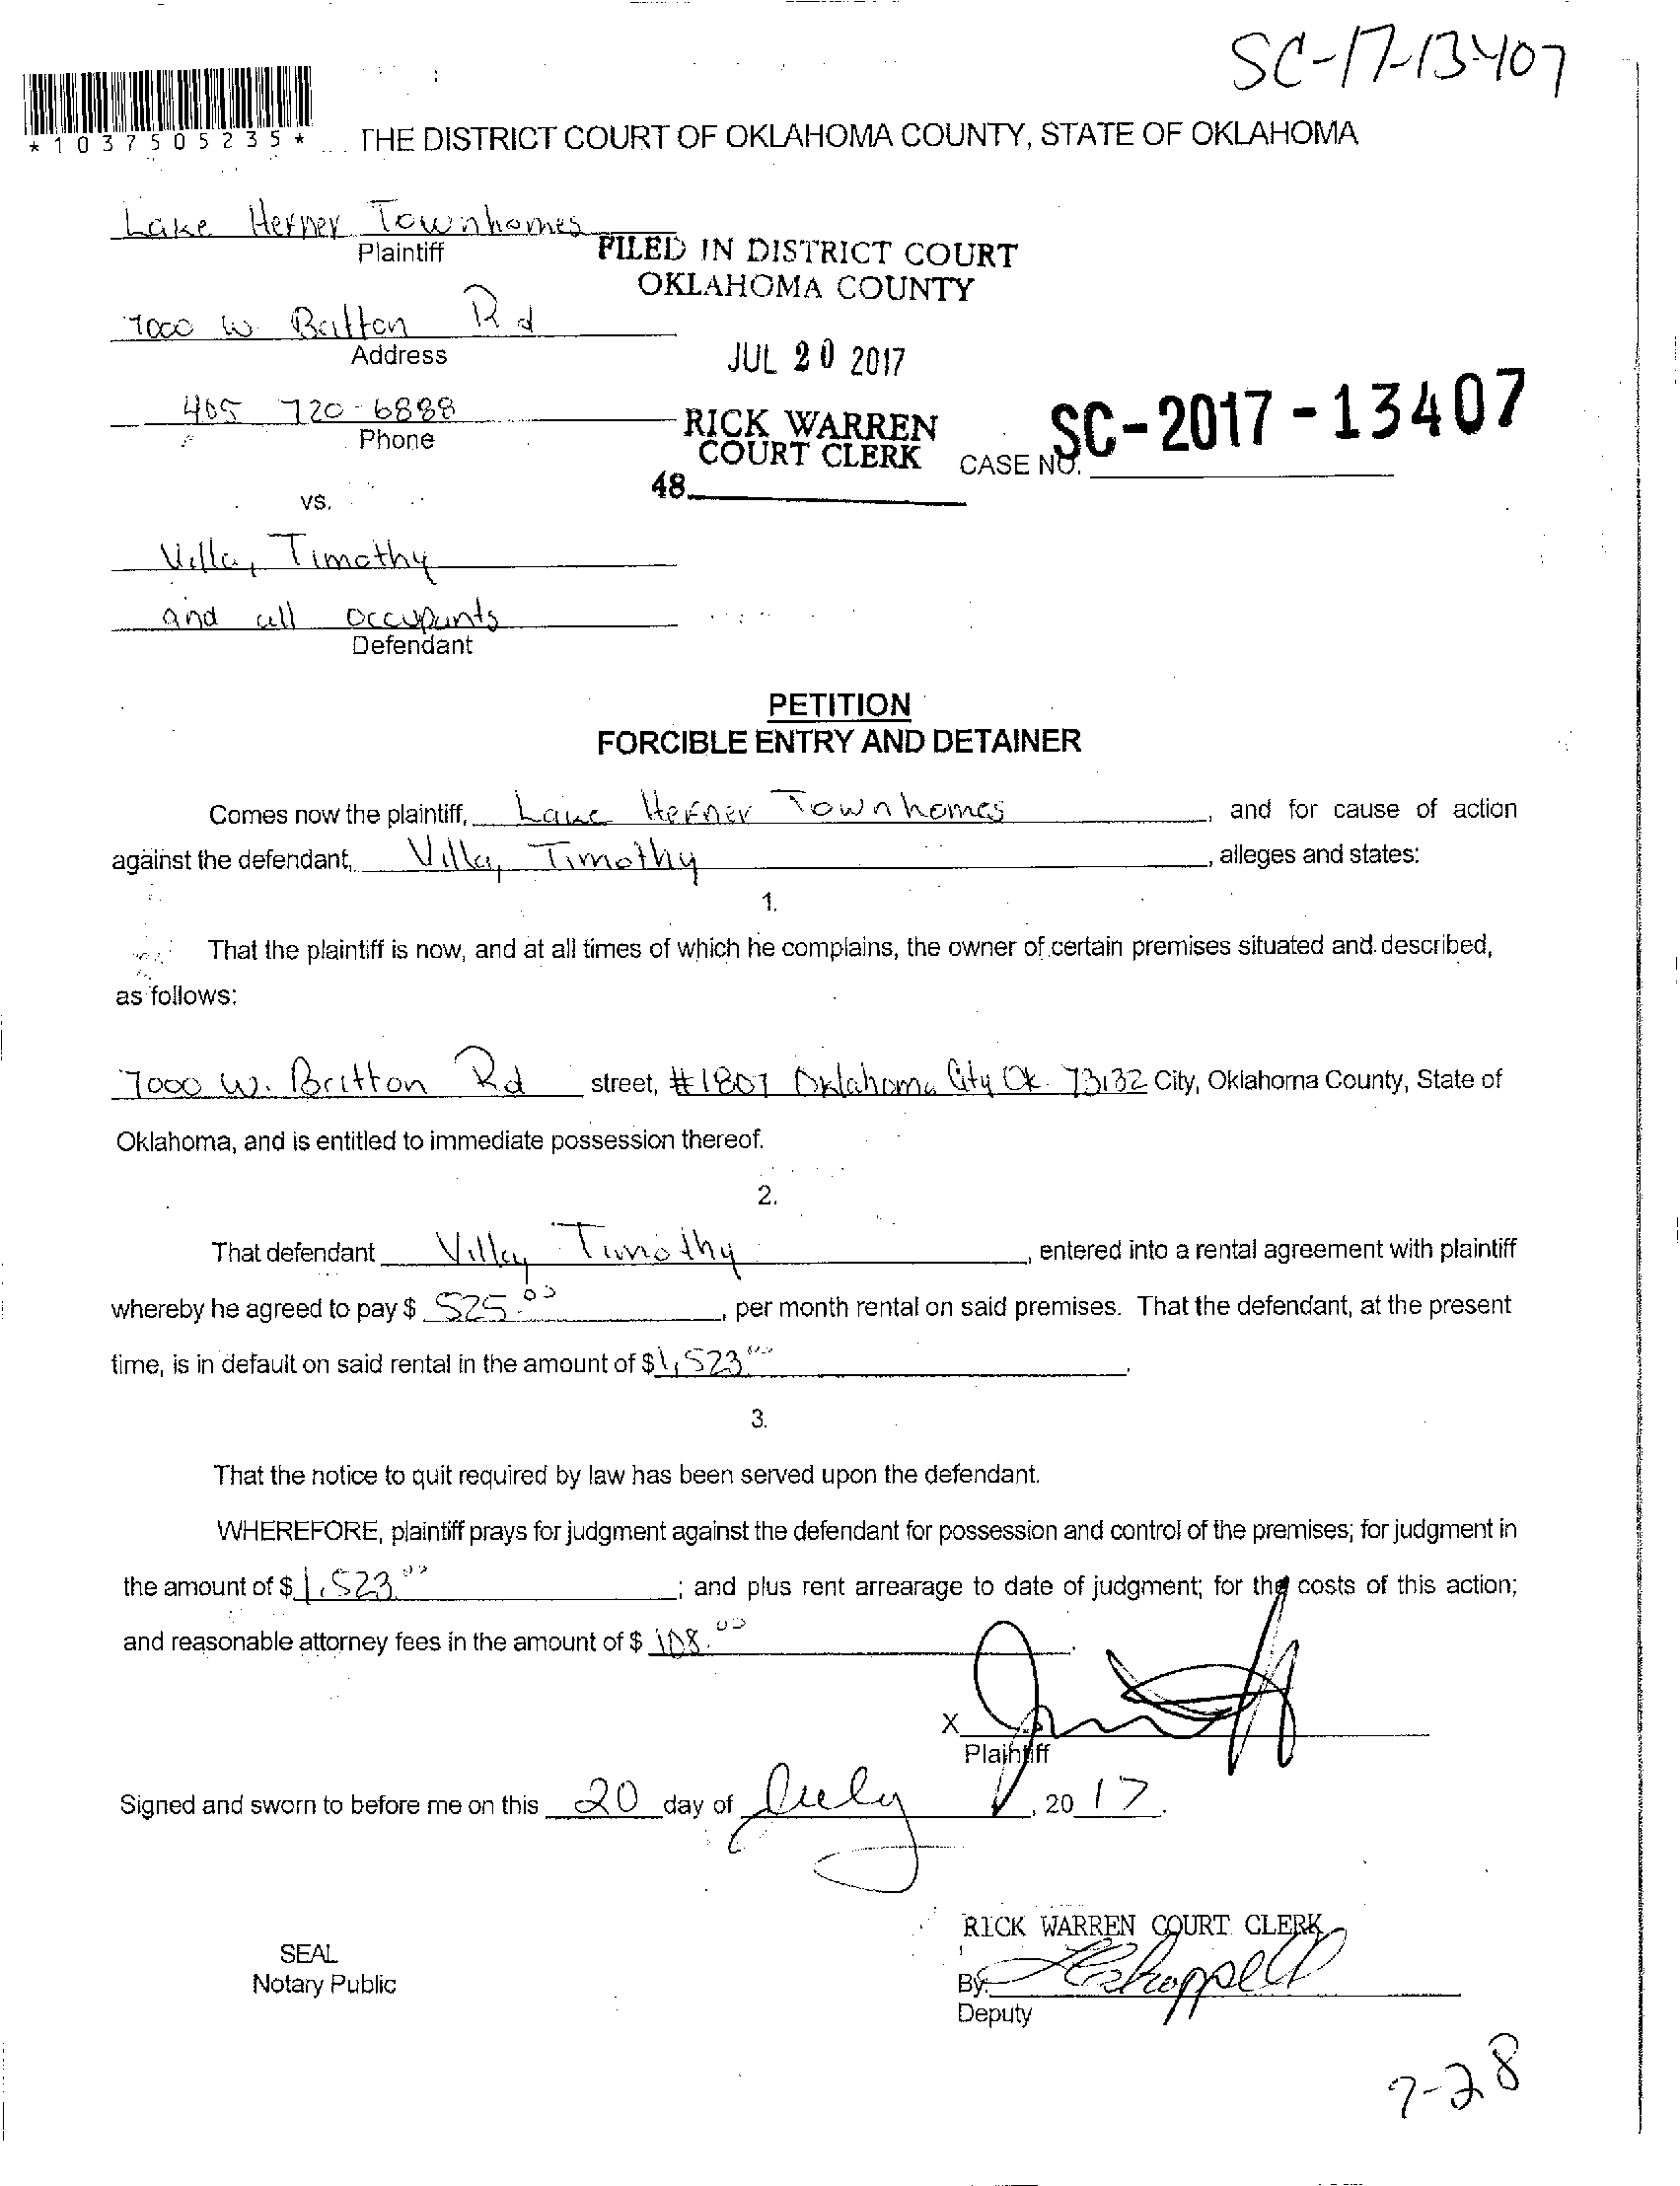 SC-17-13407
*1037505235*
THE DISTRICT COURT OF OKLAHOMA COUNTY, STATE OF OKLAHOMA
Lake Hefner Townhomes
Plaintiff
FILED IN DISTRICT COURT
OKLAHOMA COUNTY
7000 W. Britton Rd
Address
JUL 20 2017
405 720-6888
Phone
RICK WARREN
COURT CLERK
CASE NO. SC-2017-13407
48
vs.
Villa, Timothy
and all occupants
Defendant
PETITION
FORCIBLE ENTRY AND DETAINER
Comes now the plaintiff, Lake Hefner Townhomes, and for cause of action
against the defendant, Villa, Timothy, alleges and states:
1.
That the plaintiff is now, and at all times of which he complains, the owner of certain premises situated and described,
as follows:
7000 W. Britton Rd street, #1807 Oklahoma City Ok. 73132 City, Oklahoma County, State of
Oklahoma, and is entitled to immediate possession thereof.
2.
That defendant Villa, Timothy, entered into a rental agreement with plaintiff
whereby he agreed to pay $ 525.00, per month rental on said premises. That the defendant, at the present
time, is in default on said rental in the amount of $1,523.00.
3.
That the notice to quit required by law has been served upon the defendant.
WHEREFORE, plaintiff prays for judgment against the defendant for possession and control of the premises; for judgment in
the amount of $ 1,523.00; and plus rent arrearage to date of judgment; for the costs of this action;
and reasonable attorney fees in the amount of $ 108.00.
X
Plaintiff
Signed and sworn to before me on this 20 day of July, 2017.
RICK WARREN COURT CLERK
SEAL
Notary Public
By:
Deputy
7-28